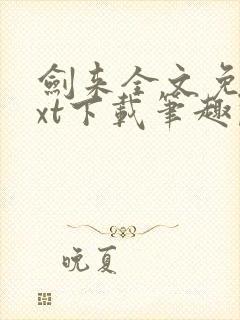 劍来全文免
xt下載筆趣
晚夏